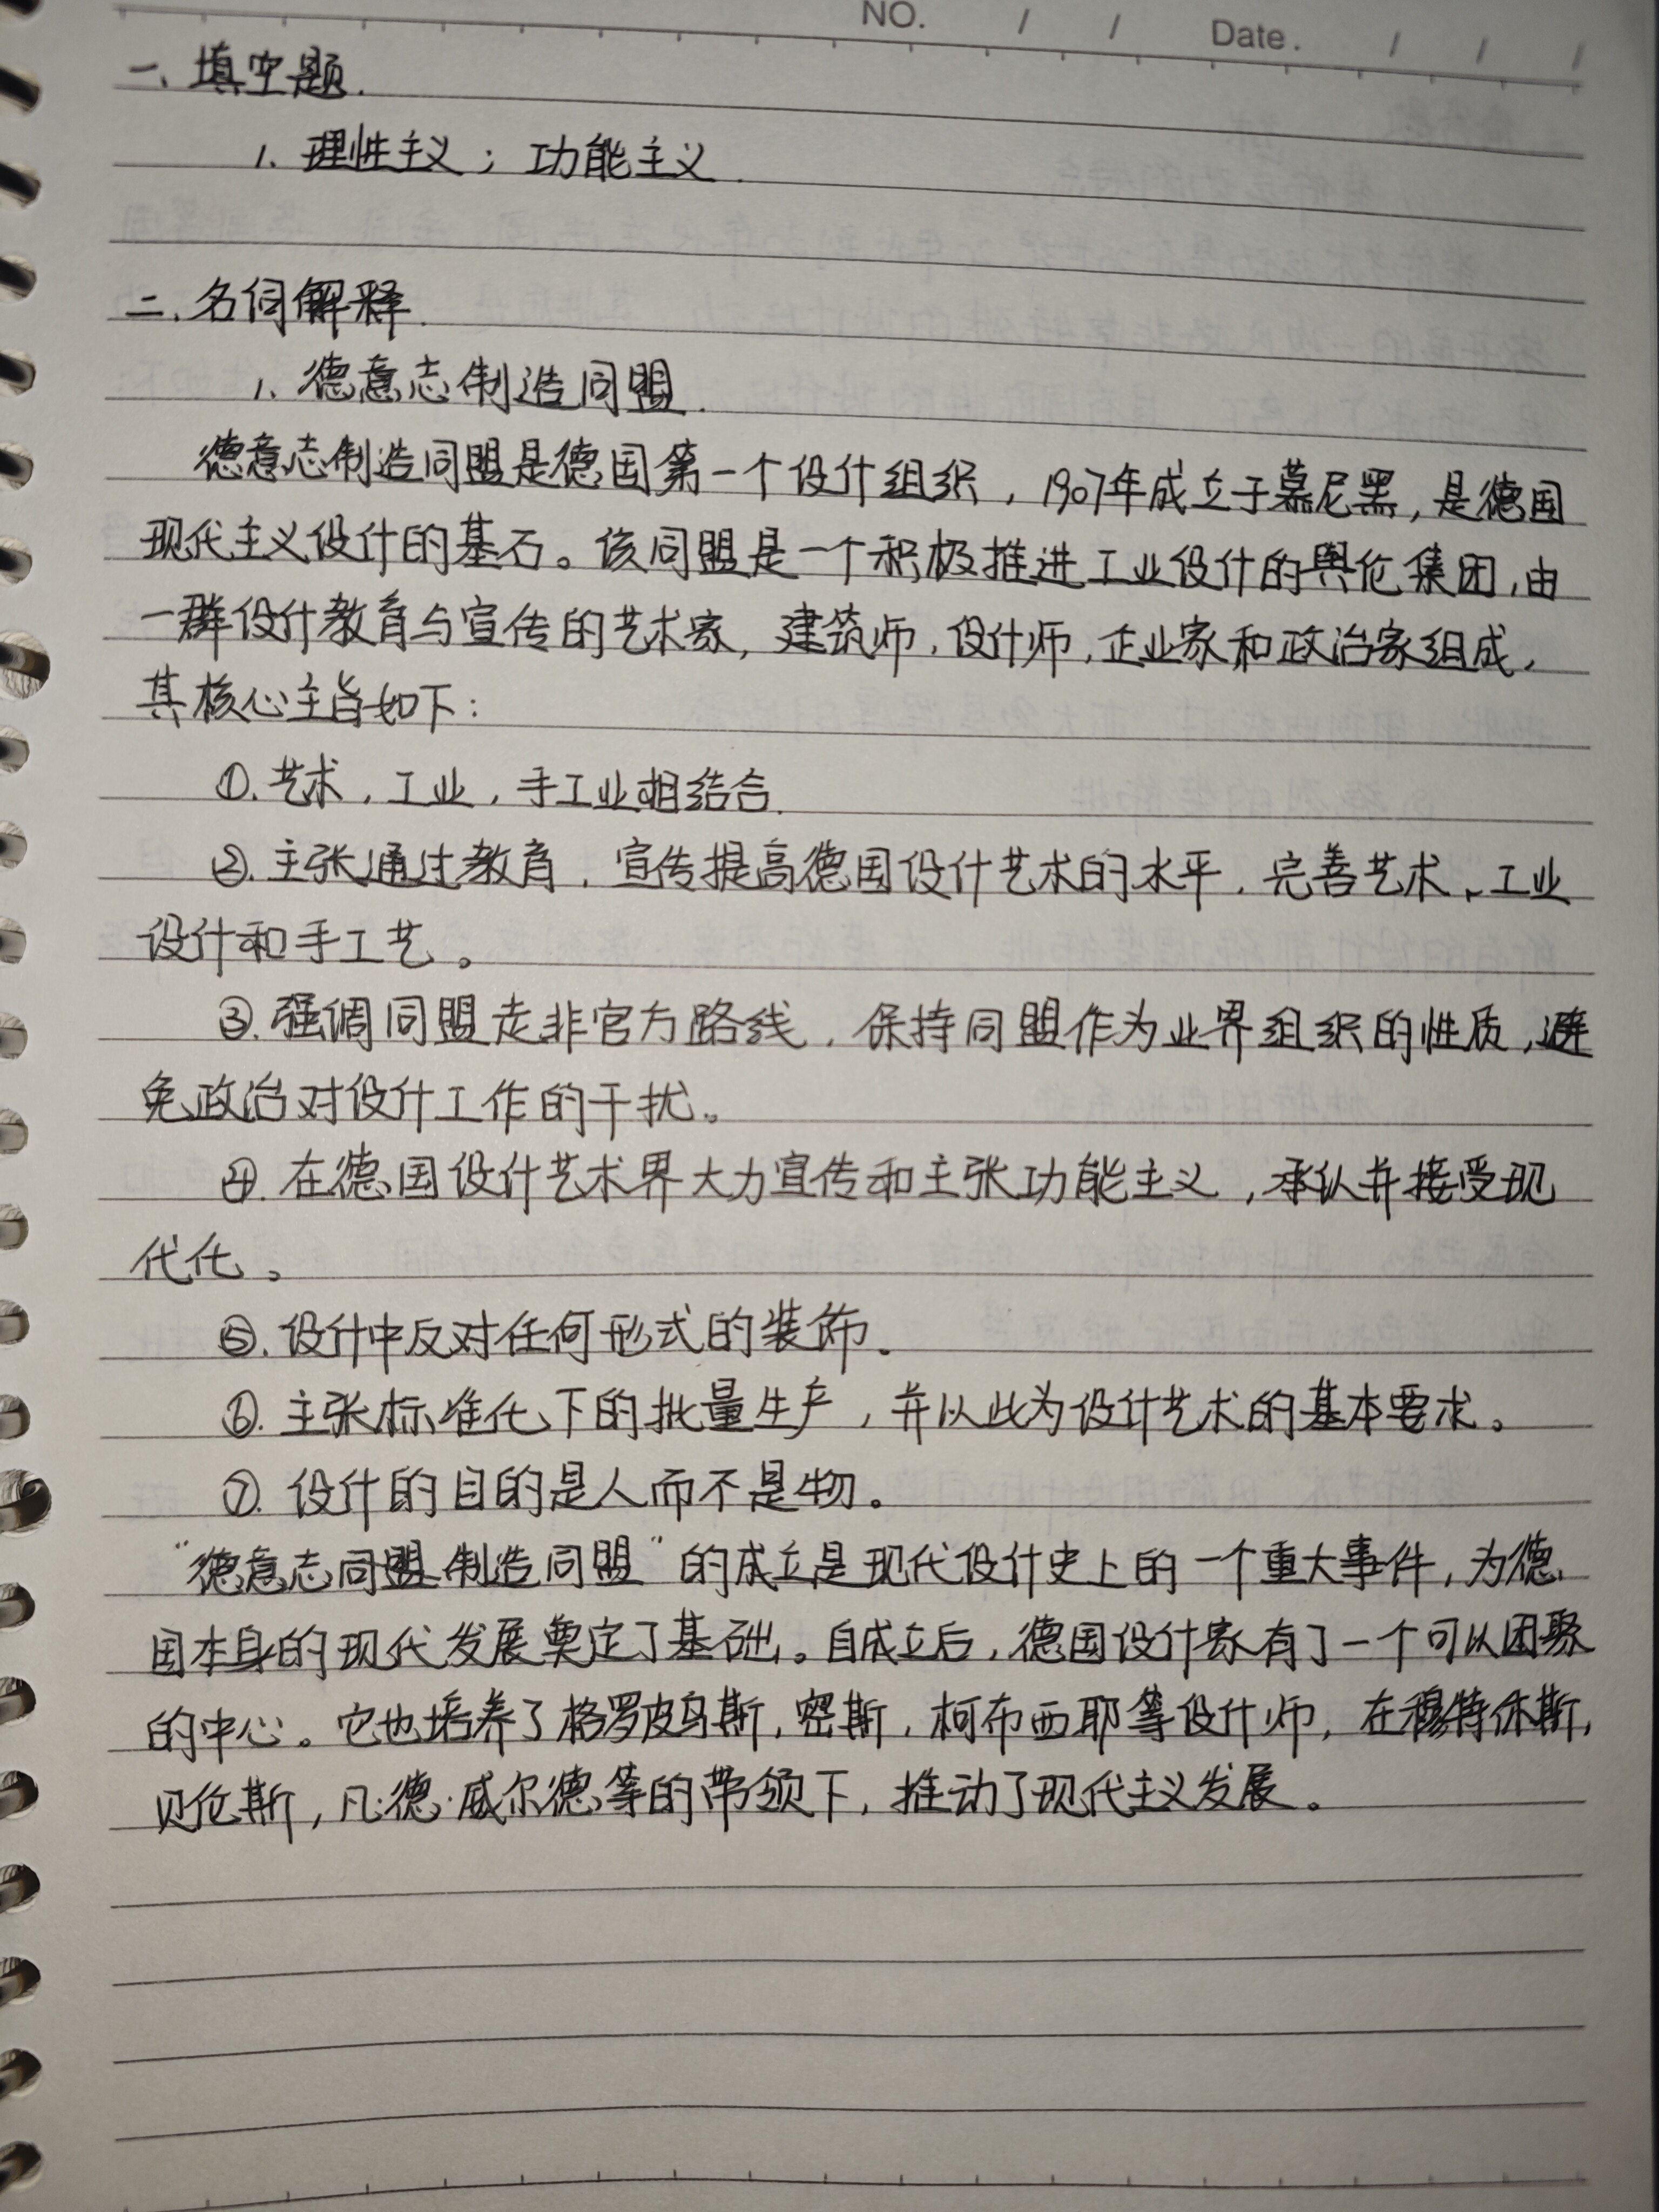 NO. / / Date. / / /
一、填空题.
1. 理性主义；功能主义.
二、名词解释.
1. 德意志制造同盟.
德意志制造同盟是德国第一个设计组织，1907年成立于慕尼黑，是德国
现代主义设计的基石。该同盟是一个积极推进工业设计的舆伦集团，由
一群设计教育与宣传的艺术家，建筑师，设计师，企业家和政治家组成，
其核心主旨如下：
①. 艺术，工业，手工业相结合.
②. 主张通过教育，宣传提高德国设计艺术的水平，完善艺术、工业
设计和手工艺。
③. 强调同盟走非官方路线，保持同盟作为业界组织的性质，避
免政治对设计工作的干扰。
④. 在德国设计艺术界大力宣传和主张功能主义，承认并接受现
代化。
⑤. 设计中反对任何形式的装饰。
⑥. 主张标准化下的批量生产，并以此为设计艺术的基本要求。
⑦. 设计的目的是人而不是物。
“德意志同盟制造同盟”的成立是现代设计史上的一个重大事件，为德
国本身的现代发展奠定了基础。自成立后，德国设计家有了一个可以团聚
的中心。它也培养了格罗皮乌斯，密斯，柯布西耶等设计师，在穆特休斯，
贝伦斯，凡·德·威尔德等的带领下，推动了现代主义发展。